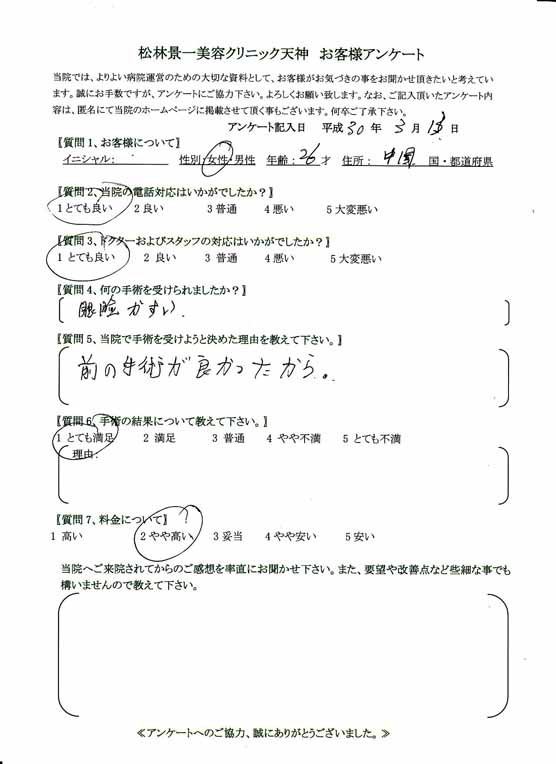 松林景一美容クリニック天神　お客様アンケート
当院では、よりよい病院運営のための大切な資料として、お客様がお気づきの事をお聞かせ頂きたいと考えてい
ます。誠にお手数ですが、アンケートにご協力下さい。よろしくお願い致します。なお、ご記入頂いたアンケート内
容は、匿名にて当院のホームページに掲載させて頂く事もございます。何卒ご了承下さい。
アンケート記入日　平成 30 年 3 月 13 日
【質問 1、お客様について】
イニシャル：　性別：女性・男性　年齢：26 才　住所：中国　国・都道府県
【質問 2、当院の電話対応はいかがでしたか？】
1 とても良い　2 良い　3 普通　4 悪い　5 大変悪い
【質問 3、ドクターおよびスタッフの対応はいかがでしたか？】
1 とても良い　2 良い　3 普通　4 悪い　5 大変悪い
【質問 4、何の手術を受けられましたか？】
眼瞼かすい.
【質問 5、当院で手術を受けようと決めた理由を教えて下さい。】
前の手術が良かったから。
【質問 6、手術の結果について教えて下さい。】
1 とても満足　2 満足　3 普通　4 やや不満　5 とても不満
理由：
【質問 7、料金について】 ?
1 高い　2 やや高い　3 妥当　4 やや安い　5 安い
当院へご来院されてからのご感想を率直にお聞かせ下さい。また、要望や改善点など些細な事でも
構いませんので教えて下さい。
≪アンケートへのご協力、誠にありがとうございました。≫